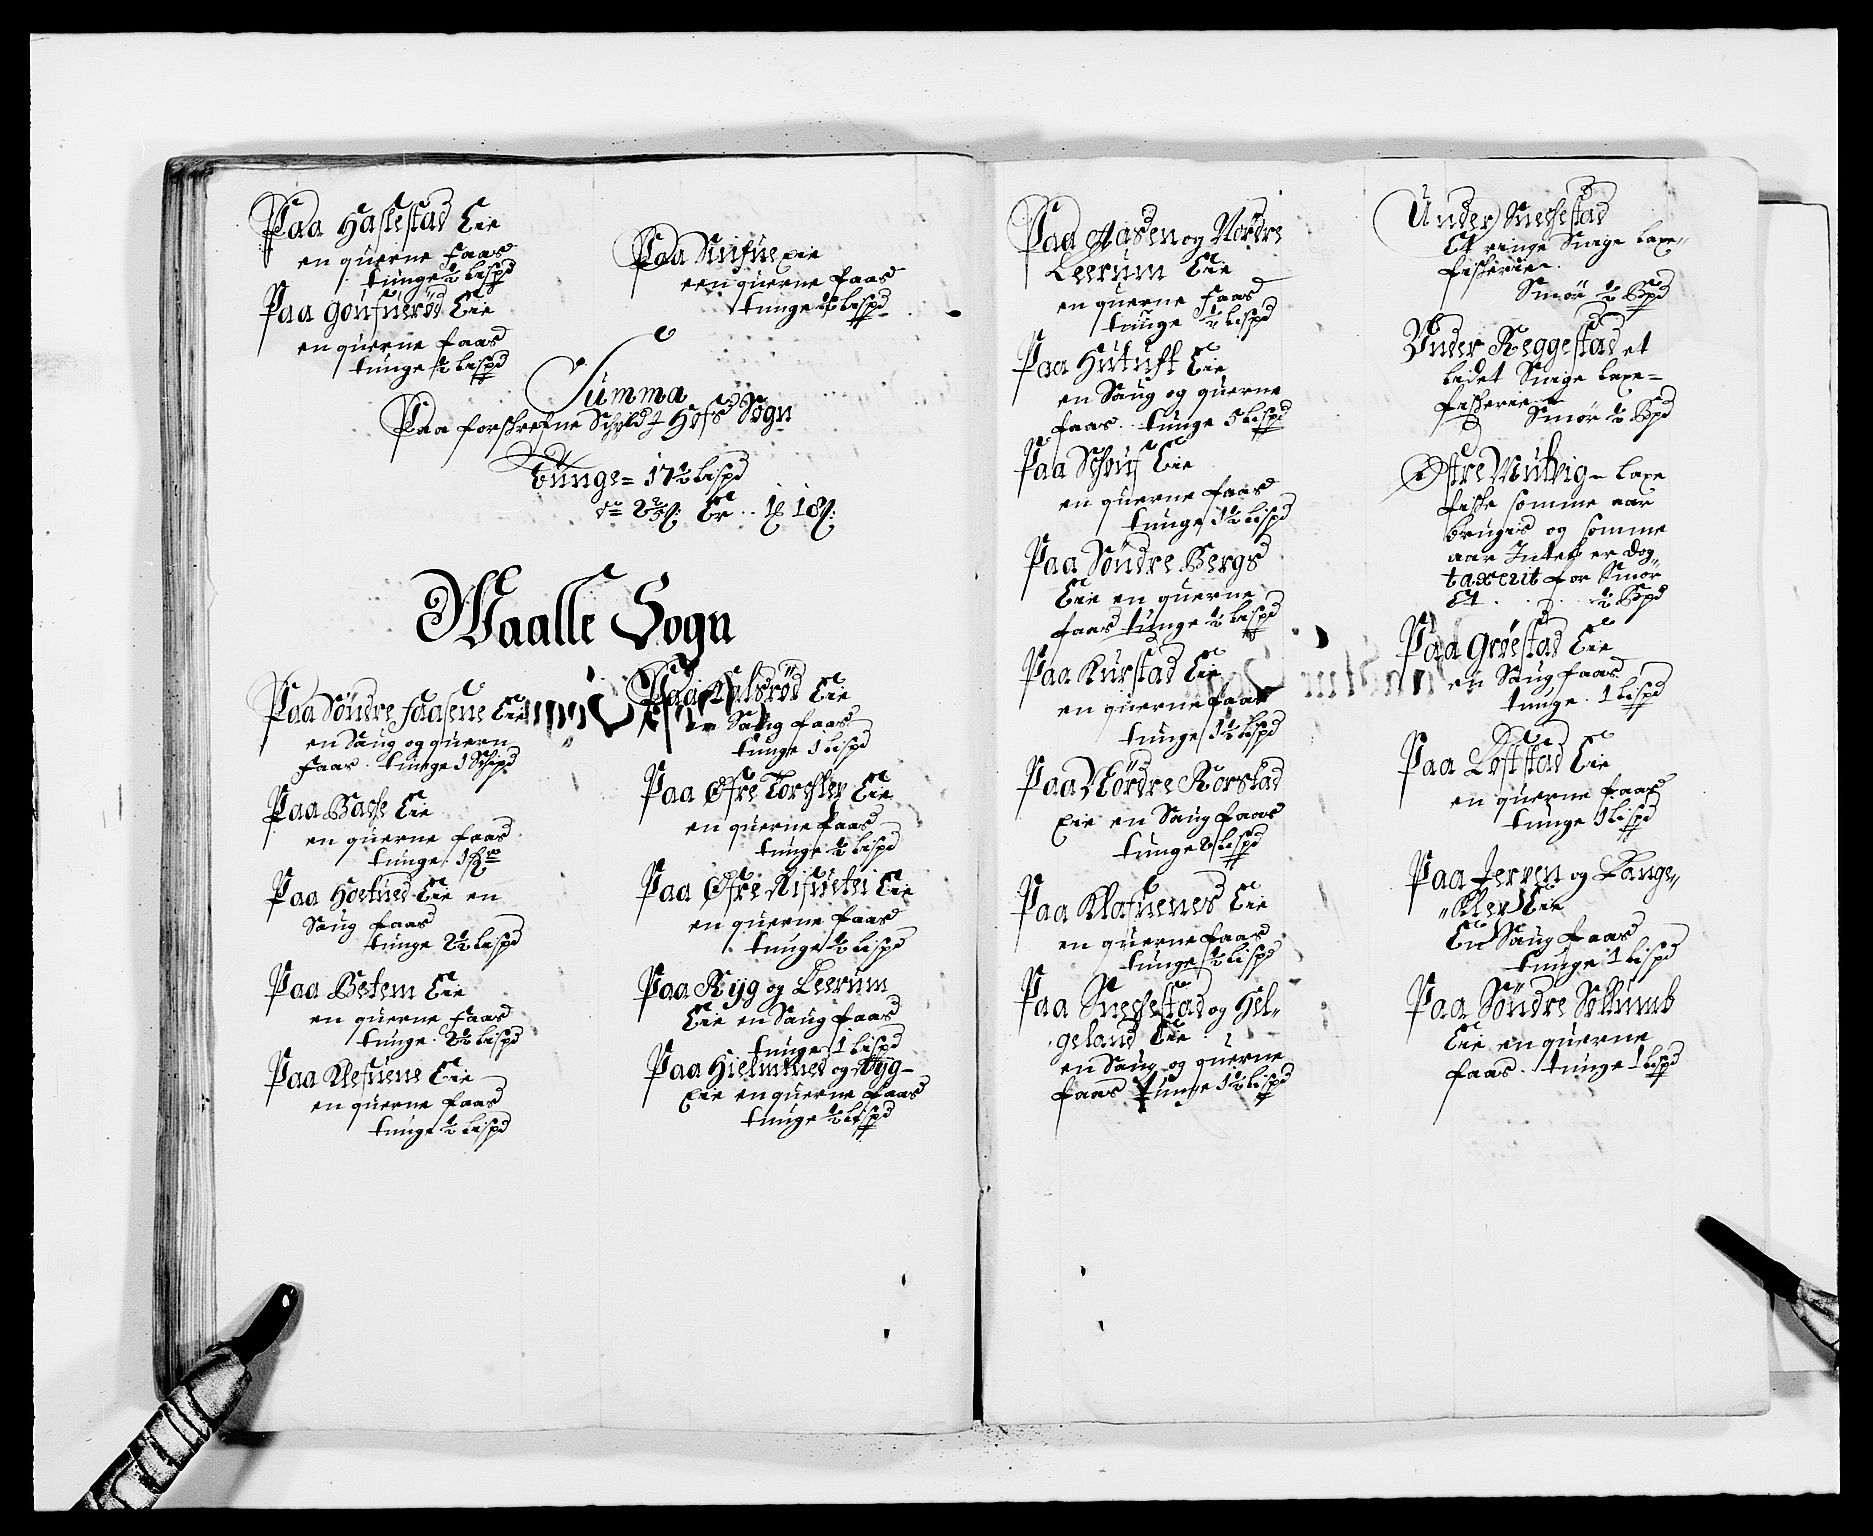 Paa Haslestad Eie
en querne faas
tunge ½ Lispd
Paa Goufuerød Eie
en querne faas
tunge ½ Lispd
Paa Eie
een querne faas
tunge ½ Lispd
Summa
Paa forskrefne Schyld I Hofs Sogn
Tunge = 17½ Lispd
Er
Waalle Sogn
Paa Søndre Faasene Eie
en Saug og quern
faas. tunge 1 Schpd
Paa Bache Eie
en querne faas
tunge.
Paa Hoelued Eie en
Saug faas
tunge 2½ Lispd
Paa Betem Eie
en querne faas
tunge. 2½ Lispd
Paa Klefuene Eie
en querne faas
tunge ½ Lispd
Paa Kalsrød Eie
en Saug faas
tunge 1 Lispd
Paa Øfre Eie
en querne faas
tunge ½ Lispd
Paa Øfre Eie
en querne faas
tunge ½ Lispd
Paa Ryg og Leerum
Eie en Saug faas
tunge 1 Lispd
Paa Hielmtued og Myg-
Eie en querne faas
tunge ½ Lispd
Paa Aasen og Nordre
Leerum Eie
en querne faas
tunge ½ Lispd
Paa Hutuft Eie
en Saug og querne
faas. tunge 5 Lispd
Paa Eie
en querne faas
tunge 1½ Lispd
Paa Søndre Bergs
Eie en querne
faas tunge ½ Lispd
Paa Kurstad Eie
en querne faas
tunge 1½ Lispd
Paa Nordre Korstad
Eie en Saug faas
tunge 2 Lispd
Paa Klafuenes Eie
en querne faas
tunge ½ Lispd
Paa Snechestad og Hel-
geland Eie
en Saug og querne
faas tunge 1½ Lispd
Under Snechestad
Et ringe Snige Laxe-
fischerie.
Smør ½ Bpd
Under Reggestad et
lidet Snige Laxe-
fischerie
Smør ½ Bpd
Øfre Mulvig Laxe
fische somme aar
bruges og somme
aar Intet er dog
taxerit for Smør
Et . . . ½ Bpd
Paa Grøestad Eie
en Saug faas
tunge. 1 Lispd
Paa Løftstad Eie
en querne faas
tunge 1 Lispd
Paa Jerven og Lange-
Kler Eie
En Saug faas
tunge 1 Lispd
Paa Søndre Sollumb
Eie en querne
faas. tunge 1 Lispd